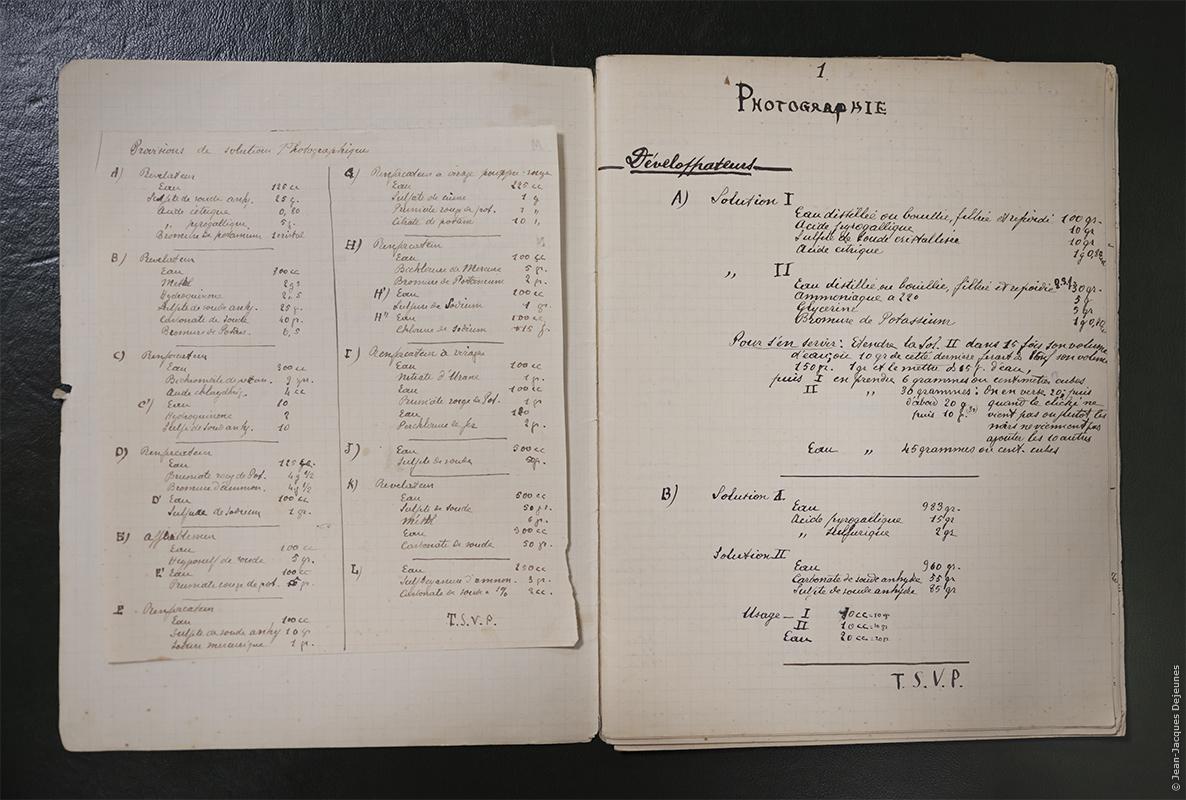 Provisions de solutions Photographiques
A) Revelateur
Eau 125 cc
Sulfite de soude anhy. 25 g.
Acide citrique 0,20
„ pyrogallique 5 g.
Bromure de potassium 1 cristal
B) Revelateur
Eau 300 cc
Métol
Hydroquinone
Sulfite de soude anhy. 25 g.
Carbonate de soude 40 gr.
Bromure de Potass. 0,5
C) Renforcateur
Eau 300 cc
Bichromate de
Acide chlorydhriq. 4 cc
C') Eau 10
Hydroquinone
Sulfi de soud anhy. 10
D) Renforcateur
Eau 125 cc.
rouge de Pot. 4 g ½
Bromure d'ammon. 4 g ½
D' Eau 100 cc
Sulfure de sodium 1 gr.
E)
Eau 100 cc
de soude 5 gr.
E' Eau 100 cc
rouge de pot. gr.
F Renforcateur
Eau 100 cc
Sulfite de soude anhy 10 g
Iodure mercurique 1 gr.
G) Renforcateur à virage
Eau 225 cc
Sulfate de cuivre 1 g
rouge de pot. 1 „
Citrate de potass 10 „
H) Renforcateur
Eau 100 cc
Bichlorure de Mercure 5 gr.
Bromure de Potassium 2 gr.
H') Eau 100 cc
Sulfure de Sodium 1 gr.
H" Eau 100 cc
de Sodium 15 g.
I) Renforcateur à virages
Eau 100 cc
Nitrate d'Urane 1 gr.
Eau 100 cc
rouge de Pot. 1 gr
Eau 100
Perchlorure de fer 2 gr.
J) Eau 500 cc
Sulfite de soude gr.
K) Revelateur
Eau 500 cc
Sulfite de soude 50 gr.
Métol 6 gr.
Eau 500 cc
Carbonate de soude 50 gr.
L) Eau 250 cc
d'ammon. 3 gr.
Carbonate de soude 1% 2 cc.
T.S.V.P.
1
PHOTOGRAPHIE
Développateurs
A) Solution I
Eau distillée ou bouillie, filtrée et refroidi 100 gr.
Acide pyrogallique 10 gr
Sulfite de soude cristallisée 10 gr
Acide citrique
„ II
Eau distillée ou bouillie, filtrée et refroidie gr.
Ammoniaque a 220 5 g
Glycerine 5 gr
Bromure de Potassium
Pour s'en servir : Etendre la Sol. II dans 15 fois son volume
d'eau, ou 10 gr de cette dernière son volume
150 gr. 1 gr et le mettre ds 15 g. d'eau,
puis I en prendre 6 grammes ou centimetres cubes
II „ 30 grammes : On en verse 20, puis
d'abord 20 g quand le cliché ne
puis 10 g vient pas ou plutot, les
noirs ne viennent pas
ajouter les 10 autres
Eau „ 45 grammes ou cent. cubes
B) Solution I
Eau 983 gr.
Acide pyrogallique 15 gr
„ sulfurique 2 gr
Solution II
Eau 960 gr.
Carbonate de soude anhydre 55 gr
Sulfite de soude anhydre 85 gr
Usage - I 10 cc = 10 gr
II 10 cc = 10 gr
Eau 20 cc = 20 gr.
T. S. V. P.
© Jean-Jacques Dejeunes